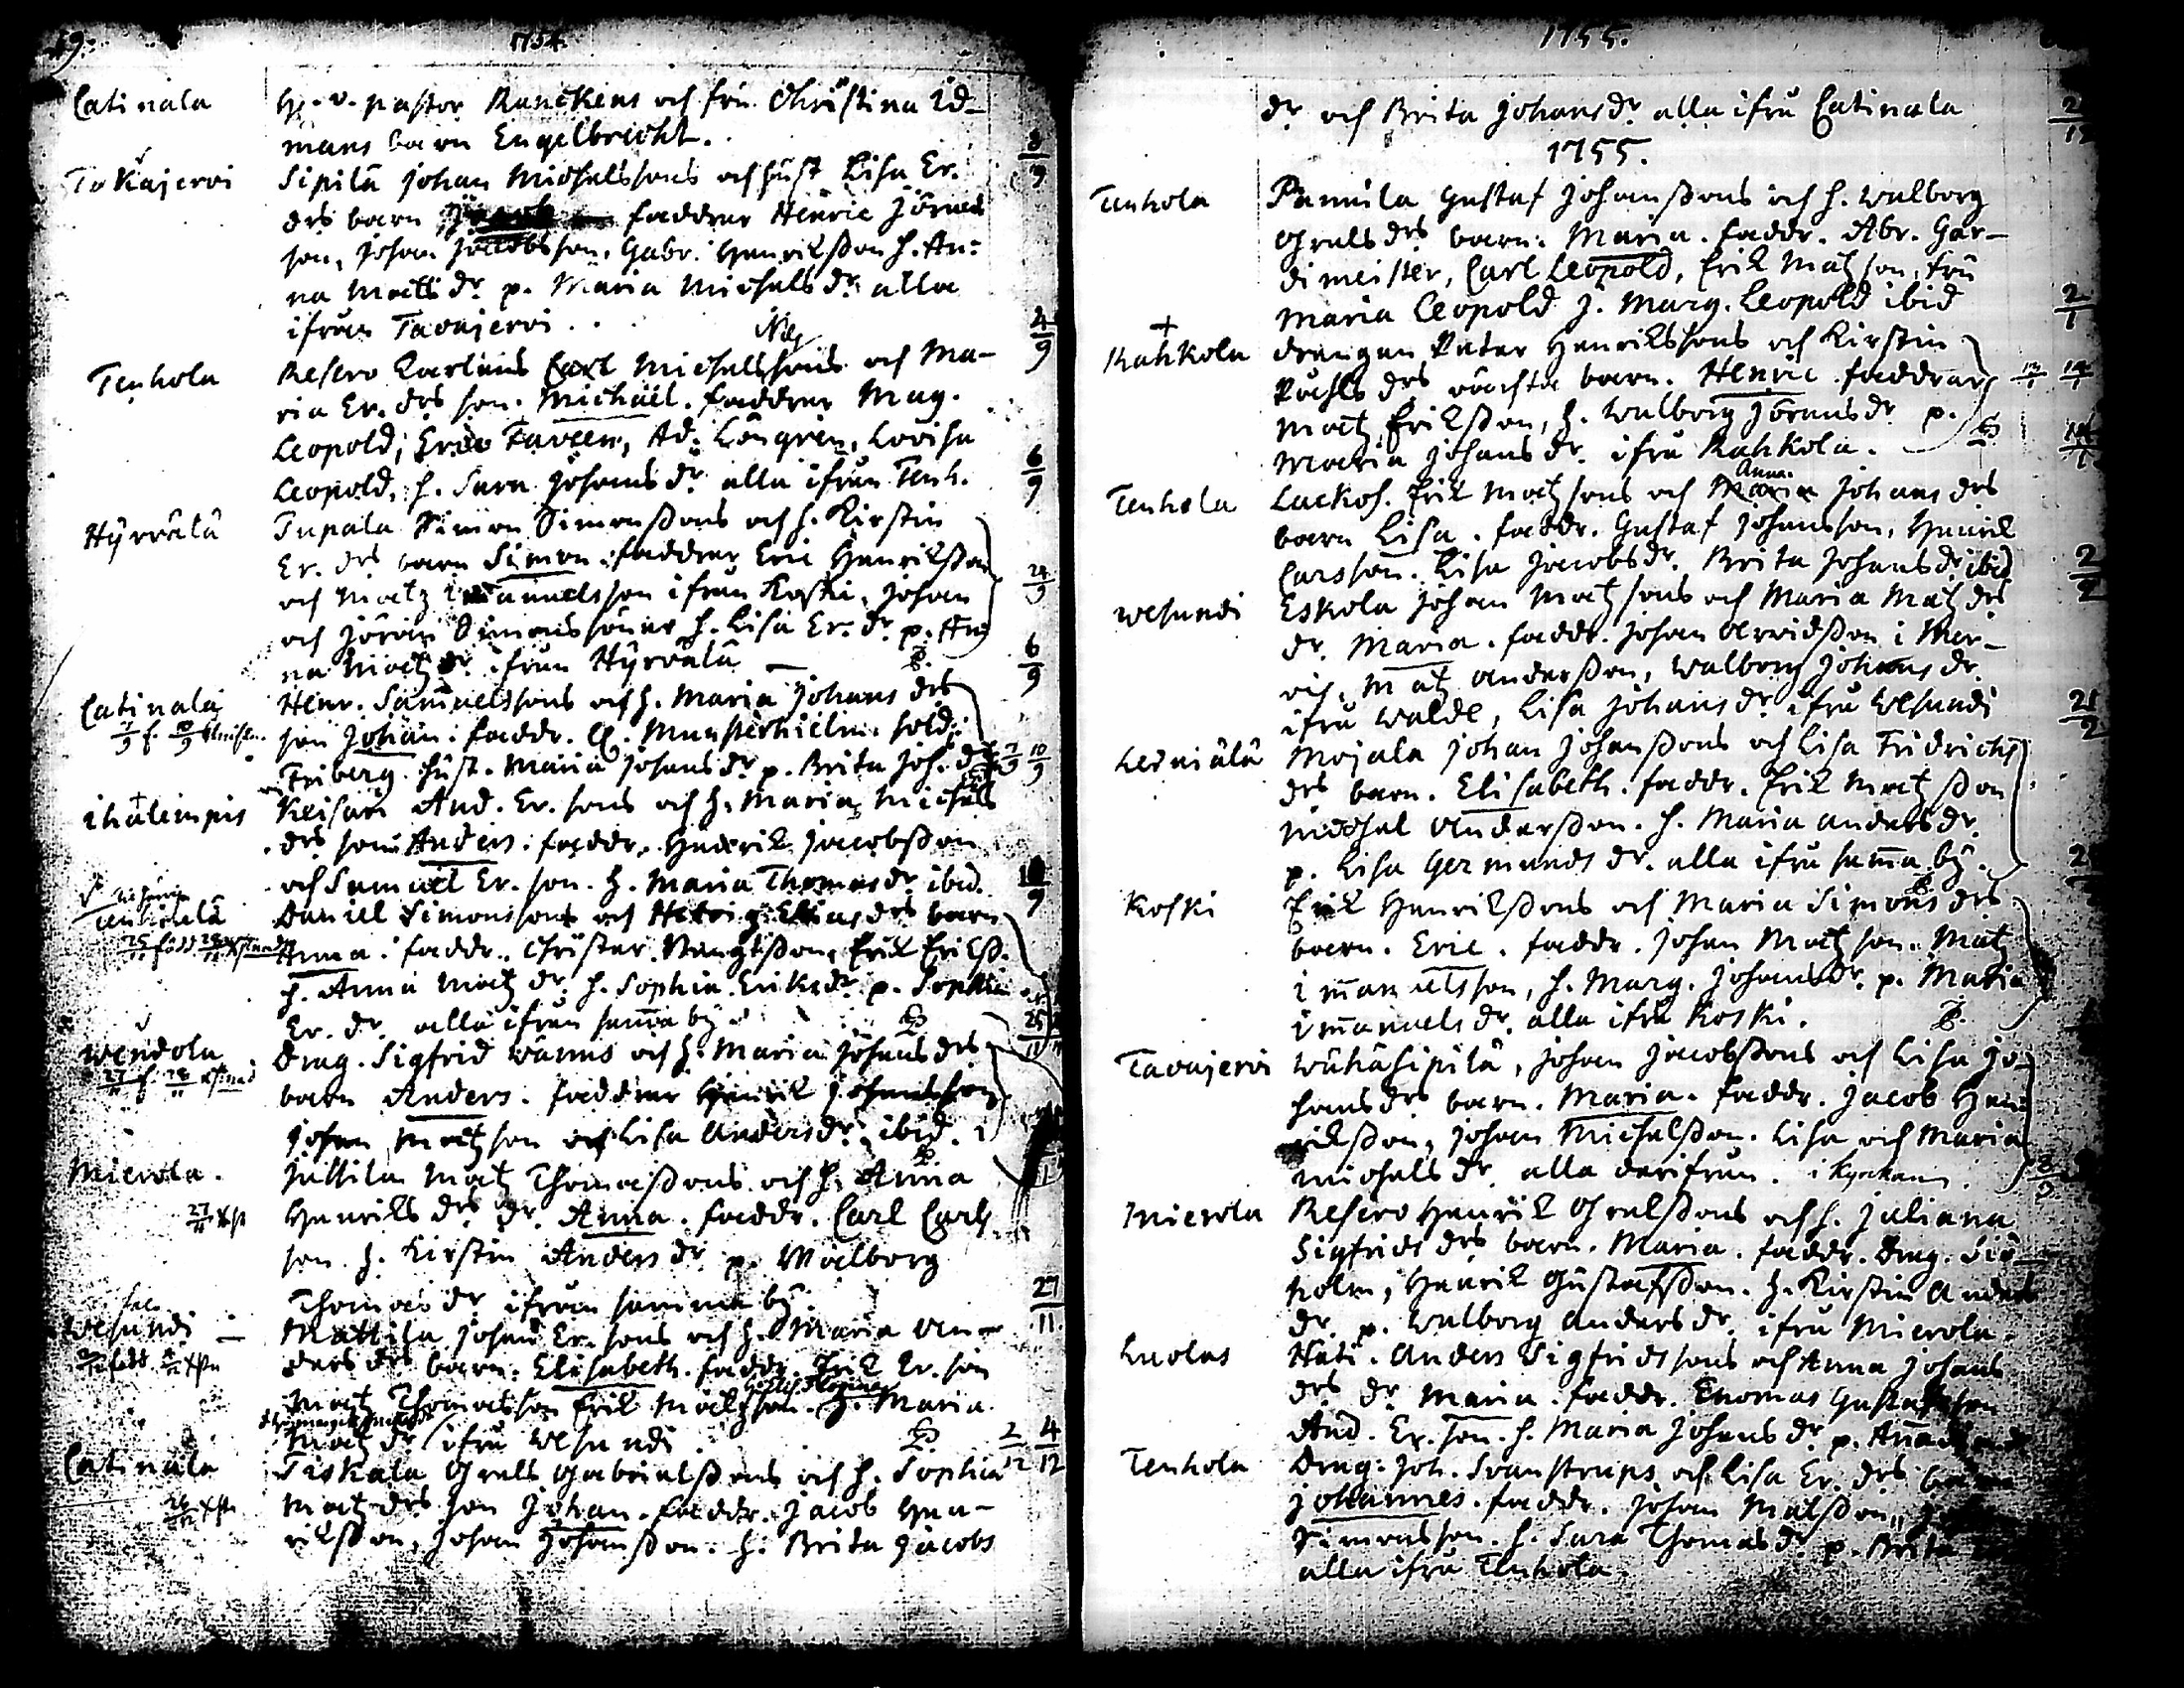 1754.
Catinala H. v. pastor Ranckens och fru Christina Id-
mans barn Engelbricht.
Tavajervi Sipilä Johan Michelssons och hust Lisa Er.
drs barn faddrar Henric Jörans
son, Johan Jacobsson, Gabr. Henrikßon h. An-
na Matts dr p. Maria Michels dr alla
ifrån Tavajervi. 4/9
Nils
Tenhola Resero Karlens Carl Michelssons och Ma-
ria Er. drs son. Michäel. faddrar Mag.
Leopold, Eric Faveen, Ad. Löngren, Lovisa
Leopold, h. Sara Johans dr alla ifrån Tenh. 6/9
Hyrvälä Tupala Simon Simonßons och h. Kirstin
Er. drs barn Simon. faddrar Eric Henrikßon
och Matz Immanuelsson ifrån Koski, Johan
och Jöran Simonssöner h. Lisa Er. dr p. An
na Matz dr ifrån Hyrvälä 6/9
Catinala Henr. Samuelssons och h. Maria Johans drs
son Johan. faddr. C. Munsterhielm. sold.
Friberg. hust. Maria Johans dr p. Brita Joh. dr 7/9 10/9
Ihalempis Keisari And. Er. sons och h. Maria Michels
drs son Anders. faddr. Henrik Jacobßon
och Samuel Er. son. h. Maria Thomas dr ibid.
Daniel Simonssons och Hedvig Elias drs barn
Anna. faddr. Christer Bengtßon, Erik Erikß.
h. Anna Matz dr h. Sophia Eriks dr p. Sophia
Er. dr alla ifrån samma by
Wendola Drag. Sigfrid Wänns och h. Maria Johans drs
barn Anders. faddrar Henrik Johansson
Johan Matzson och Lisa Anders dr ibid.
Mierola. Juttila Matz Thomaßons och h. Anna
27/11 Xst Henriks drs dr Anna. faddr. Carl Carls
son h. Kirstin Anders dr p. Walborg
Thomas dr ifrån samma by. 27/11
Wesundi Mattila Johan Er. sons och h. Maria An-
ders drs barn. Elisabeth. faddr. Erik Er. son
Matz Thomasson Erik Matzson. h. Maria
Matz dr ifrån Wesundi 2/12 4/12
Catinala Siskala Grels Gabrielßons och h. Sophia
Matz drs son Johan. faddr. Jacob Hen-
rikßon, Johan Johanßon. h. Brita Jacobs
1755.
dr och Brita Johans dr alla ifrå Catinala
1755.
Tenhola Pamula Gustaf Johanßons och h. Walborg
Grels drs barn. Maria. faddr. Abr. Gar-
dimeister, Carl Leopold, Erik Matzson, fru
Maria Leopold J. Marg. Leopold ibid 2/1
Kahkola drengen Peter Henrikssons och Kirstin
Påhls drs oächta barn. Henric faddrar
Matz Erikßon, h. Walborg Jörans dr p.
Maria Johans dr ifrå Kahkola.
Anna.
Tenhola Lackos. Erik Matzsons och Maria Johans drs
barn Lisa. faddr. Gustaf Johansson, Henrik
Carsson. Lisa Jacobs dr. Brita Johans dr ibid 2/2
Wesundi Eskola Johan Matzsons och Maria Matz drs
dr. Maria. faddr. Johan Arvidßon i Mer-
vis, Matz Anderßon, Walborg Johans dr.
ifrå Walde, Lisa Johans dr ifrå Wesundi 21/2
Lerniälä Mojala Johan Johanßons och Lisa Fridrichs
drs barn. Elisabeth. faddr. Erik Matzßon
Michel Anderßon. h. Maria Anders dr.
p. Lisa Germunds dr. alla ifrå samma by.
Koski Erik Henrikßons och Maria Simons drs
barn. Eric. faddr. Johan Matzson. Matz
Immanuelsson, h. Marg. Johans dr. p. Maria
Immanuels dr. alla ifrå Koski.
Tavajervi Wähäsipilä, Johan Jacobßons och Lisa Jo-
hans drs barn. Maria. faddr. Jacob Hen-
rikßon, Johan Michelßon. Lisa och Maria
Michels dr. alla derifrån. i kyrkan.
Mierola Resero Henrik Grelsßons och h. Juliana
Sigfrids drs barn. Maria. faddr. Drag. Siö-
holm, Henrik Gustafsßon. h. Kirstin Anders
dr. p. Walborg Anders dr. ifrå Mierola.
Luolas Hati. Anders Sigfridssons och Anna Johans
drs dr Maria. faddr. Thomas Gustafsson
And. Er. son. h. Maria Johans dr p. Anna
Tenhola Drag. Joh. Svanstrups och Lisa Er. drs barn
Johannes. faddr. Johan Matsßon,
Simonsson. h. Sara Thomas dr p. Brita
alla ifrå Tenhola.